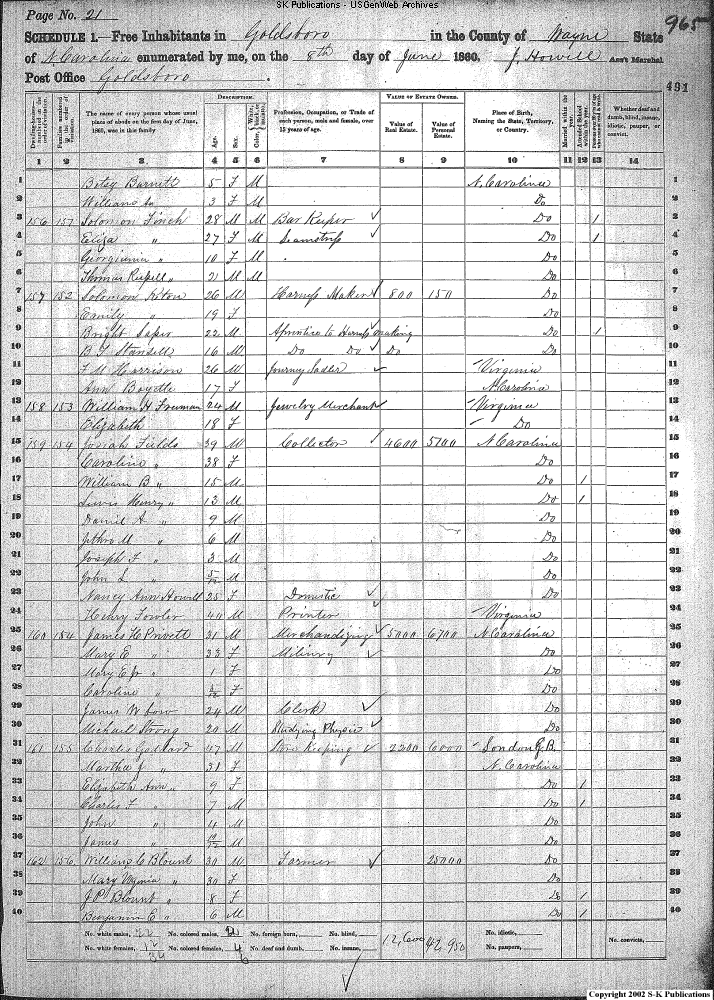 SK Publications - USGenWeb Archives
Page No. 21
965
SCHEDULE 1.—Free Inhabitants in Goldsboro in the County of Wayne State
of N Carolina enumerated by me, on the 8th day of June 1860. J Howell Ass't Marshal
Post Office Goldsboro.
491
Dwelling-houses numbered in the order of visitation.
Families numbered in the order of visitation.
The name of every person whose usual place of abode on the first day of June, 1860, was in this family.
DESCRIPTION.
Age.
Sex.
Profession, Occupation, or Trade of each person, male and female, over 15 years of age.
VALUE OF ESTATE OWNED.
Value of Real Estate.
Value of Personal Estate.
Place of Birth, Naming the State, Territory, or Country.
Married within the year.
Attended School within the year.
Whether deaf and dumb, blind, insane, idiotic, pauper, or convict.
1 2 3 4 5 6 7 8 9 10 11 12 13 14
1 Betsy Barnett 5 F M N. Carolina 1
2 Williams 3 F M Do 2
3 156 151 Solomon Finch 28 M M Bar Keeper Do 1 3
4 Eliza " 27 F M Seamstress Do 1 4
5 Georgianna " 10 F M Do 5
6 Thomas " 21 M M Do 6
7 157 152 Solomon 26 M Harness Maker 800 150 Do 7
8 Emily " 19 F Do 8
9 Bright 22 M Aprintice to Harness making Do 1 9
10 B F Stansell 16 M Do Do Do Do 10
11 Harrison 26 M Journey Sadler Virginia 11
12 Ann Boyette 17 F N. Carolina 12
13 158 153 William H Freeman 24 M Jewelry Merchant Virginia 13
14 Elizabeth 18 F Do 14
15 159 154 Josiah Fields 39 M Collector 4600 5700 N Carolina 15
16 Caroline " 38 F Do 16
17 William B " 15 M Do 1 17
18 Lewis Henry " 13 M Do 1 18
19 Daniel A " 9 M Do 19
20 Jethro " 6 M Do 20
21 Joseph F " 3 M Do 21
22 John L " M Do 22
23 Nancy Ann Howell 25 F Domestic Do 23
24 Henry Fowler M Printer Virginia 24
25 160 154 James H Privett 31 M Merchandizing 5000 6700 N Carolina 25
26 Mary E " 33 F Milinry Do 26
27 Mary E " 1 F Do 27
28 Caroline " F Do 28
29 James W 24 M Clerk Do 29
30 Michael Strong 20 M Studying Physic Do 30
31 161 155 Charles Goddard 47 M Keeping 2200 6000 London G.B. 31
32 Martha J " 31 F N. Carolina 32
33 Elizabeth Ann " 9 F Do 1 33
34 Charles F " 7 M Do 1 34
35 John " 4 M Do 35
36 James " M Do 36
37 162 156 William C Blount 30 M Farmer 25000 Do 37
38 Mary Virginia " 30 F Do 38
39 J P Blount " 8 F Do 1 39
40 Benjamin E " 6 M Do 1 40
No. white males, 22 No. colored males, 2 No. foreign born, No. blind, 12,600 42,950 No. idiotic, No. convicts,
No. white females, 12 No. colored females, 4 No. deaf and dumb, No. insane, No. paupers,
34 6
Copyright 2002 S-K Publications